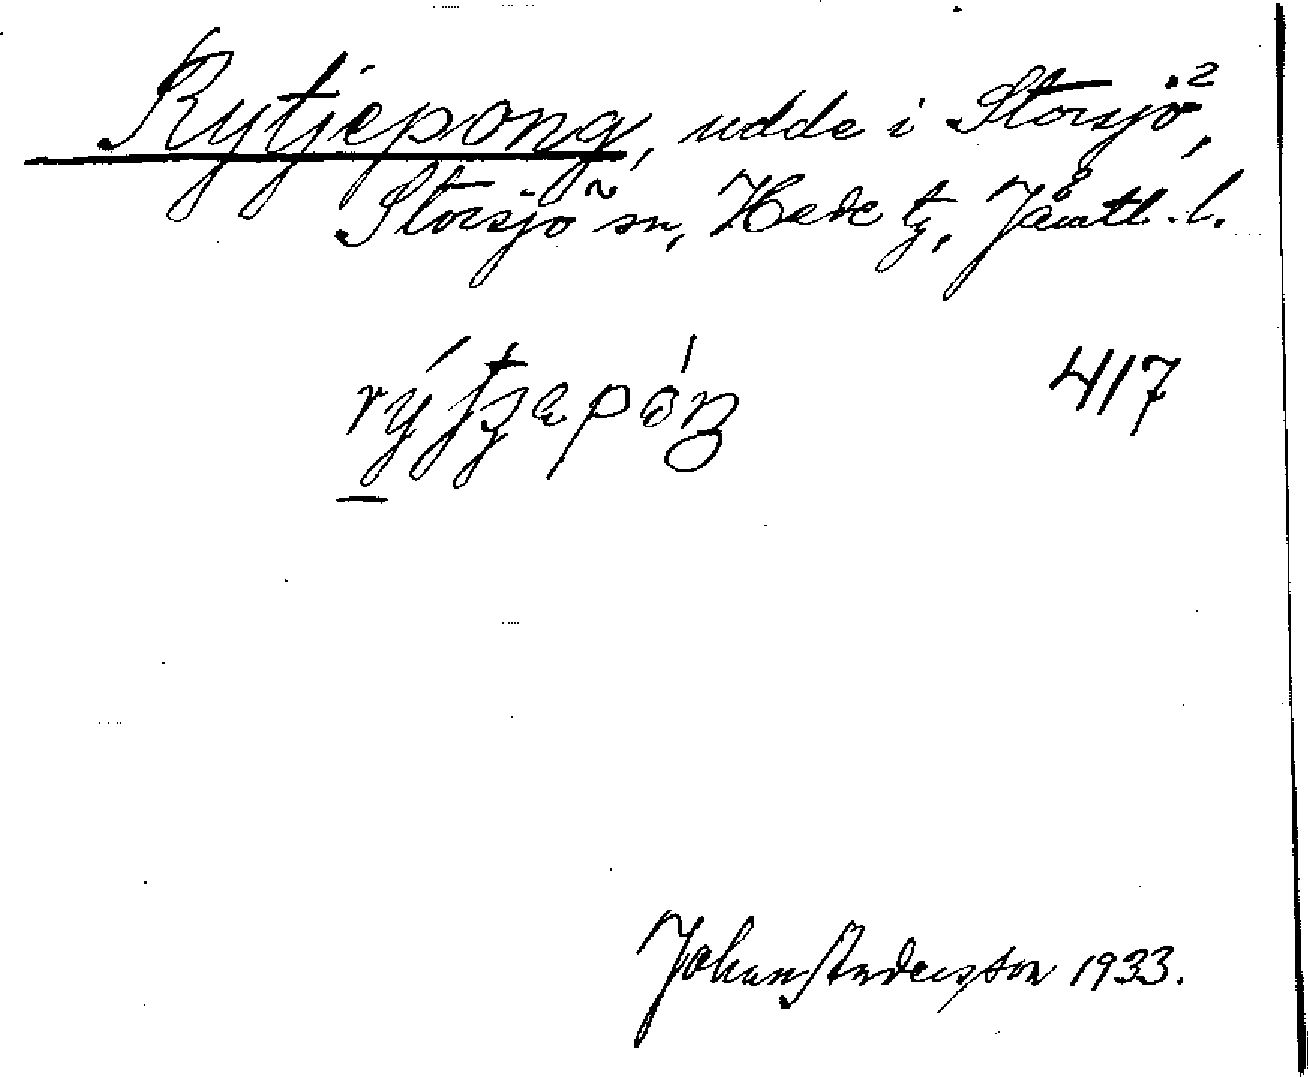 Rytjepong, udde i Storsjö,
Storsjö sn, Hede tg, Jämtl. l.
417
Johan Andersson 1933.